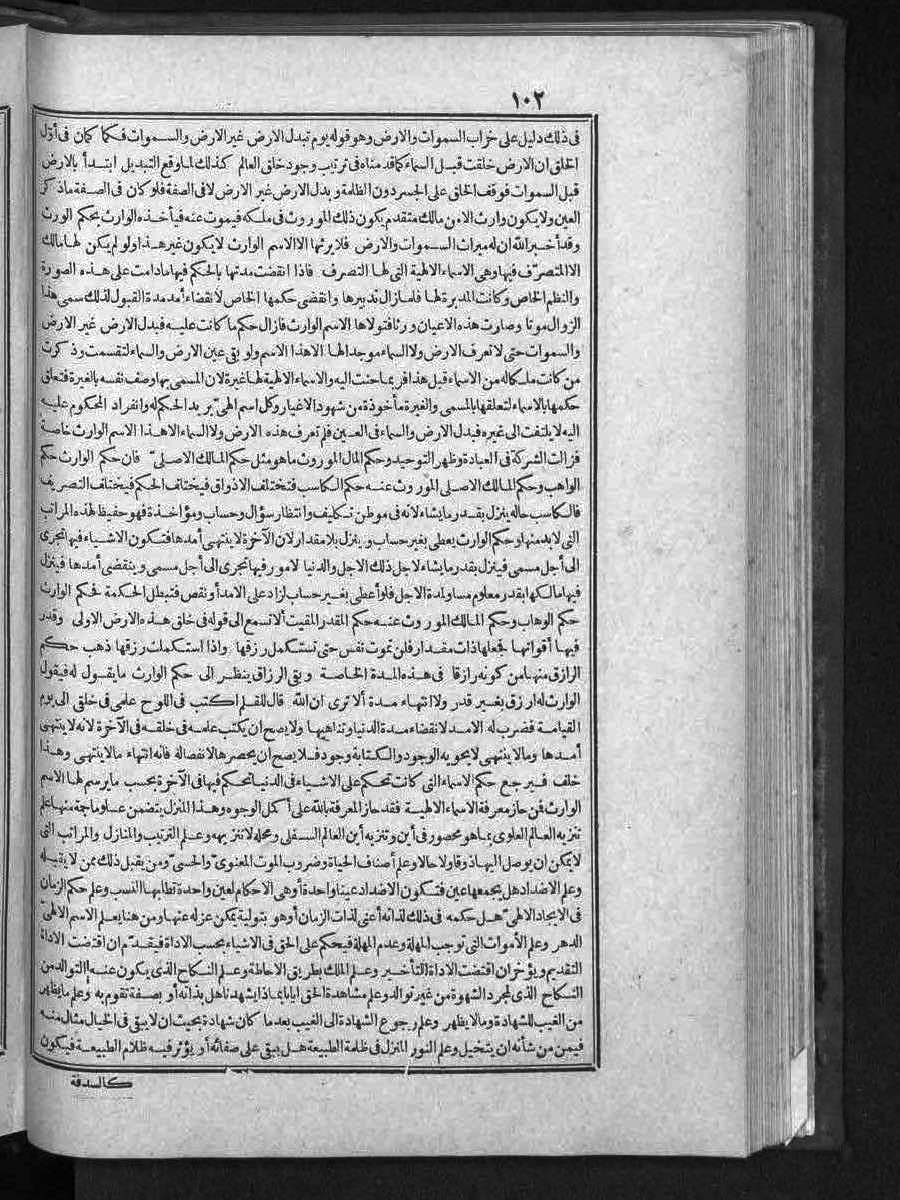 ١٠٢
فى ذلك دليل على خراب السموات والارض وهو قوله يوم تبدل الارض غير الارض والسموات فكما كان فى أوّل
الخلق ان الارض خلقت قبل السماء كما قدمناه فى ترتيب وجود خلق العالم كذلك لما وقع التبديل ابتدأ بالارض
قبل السموات فوقف الخلق على الجسر دون الظلمة وبدل الارض غير الارض لا فى الصفة فلو كان فى الصفة ماذكر
العين ولا يكون وارث الامن مالك متقدم يكون ذلك الموروث فى ملكه فيموت عنه فيأخذه الوارث بحكم الورث
وقد أخبر الله ان له ميراث السموات والارض فلا يرثها الا الاسم الوارث لا يكون غير هذا ولو لم يكن لها مالك
الا المتصرّف فيها وهى الاسماء الالهية التى لها التصرف فاذا انقضت مدتها بالحكم فيها مادامت على هذه الصورة
والنظم الخاص وكانت المدبرة لها فلما زال تدبيرها وانقضى حكمها الخاص لانقضاء أمد مدة القبول لذلك سمى هذا
الزوال موتا وصارت هذه الاعيان ورثا فتولاها الاسم الوارث فازال حكم ما كانت عليه فبدل الارض غير الارض
والسموات حتى لا تعرف الارض ولا السماء موجدا لها الا هذا الاسم ولو بقى عين الارض والسماء لتقسمت وذكرت
من كانت ملكاله من الاسماء قبل هذا فربما حنت اليه والاسماء الالهية لها غيرة لان المسمى بها وصف نفسه بالغيرة فتعلق
حكمها بالاسماء لتعلقها بالمسمى والغيرة مأخوذة من شهود الاغيار وكل اسم الهىّ يريد الحكم له وانفراد المحكوم عليه
اليه لا يلتفت الى غيره فبدل الارض والسماء فى العين فلم تعرف هذه الارض ولا السماء الا هذا الاسم الوارث خاصة
فزالت الشركة فى العبادة وظهر التوحيد وحكم المال الموروث ما هو مثل حكم المالك الاصلىّ فان حكم الوارث حكم
الواهب وحكم المالك الاصلى الموروث عنه حكم الكاسب فتختلف الاذواق فيختلف الحكم فيختلف التصريف
فالكاسب حاله ينزل بقدر ما يشاء لانه فى موطن تكليف وانتظار سؤال وحساب ومؤاخذة فهو حفيظ لهذه المراتب
التى لا بد منها وحكم الوارث يعطى بغير حساب وينزل بلا مقدار لان الآخرة لا ينتهى أمدها فتكون الاشياء فيها تجرى
الى أجل مسمى فينزل بقدر ما يشاء لاجل ذلك الاجل والدنيا لامور فيها تجرى الى أجل مسمى وينقضى أمدها فينزل
فيها مالكها بقدر معلوم مساو لمدة الاجل فلو أعطى بغير حساب لزاد على الامد أو نقص فتبطل الحكمة فحكم الوارث
حكم الوهاب وحكم المالك الموروث عنه حكم المقدر المقيت ألا تسمع الى قوله فى خلق هذه الارض الاولى وقدر
فيها أقواتها فجعلها ذات مقدار فلن تموت نفس حتى تستكمل رزقها واذا استكملت رزقها ذهب حكم
الرازق منها من كونه رازقا فى هذه المدة الخاصة وبقى الرزاق ينظر الى حكم الوارث ما يقول له فيقول
الوارث له ارزق بغير قدر ولا انتهاء مدة ألا ترى ان الله قال للقلم اكتب فى اللوح علمى فى خلقى الى يوم
القيامة فضرب له الامد لانقضاء مدة الدنيا وتناهيها ولا يصح ان يكتب علمه فى خلقه فى الآخرة لانه لا ينتهى
أمدها وما لا ينتهى لا يحويه الوجود والكتابة وجود فلا يصح ان يحصرها لانفصاله فانه انتهاء ما لا ينتهى وهذا
خلف فيرجع حكم الاسماء التى كانت تحكم على الاشياء فى الدنيا تحكم فيها فى الآخرة بحسب ما يرسم لها الاسم
الوارث فمن حاز معرفة الاسماء الالهية فقد حاز المعرفة بالله على أكمل الوجوه وهذا المنزل يتضمن علوما جمة منها علم
تنزيه العالم العلوى بما هو محصور فى أين وتنزيه أين العالم السفلى ومحله لا تنزيهه وعلم الترتيب والمنازل والمراتب التى
لا يمكن ان يوصل اليها ذوقا ولا حالا وعلم أصناف الحياة وضروب الموت المعنوىّ والحسىّ ومن يقبل ذلك ممن لا يقبله
وعلم الاضداد هل يجمعها عين فتكون الاضداد عينا واحدة أو هى الاحكام لعين واحدة تطلبها النسب وعلم حكم الزمان
فى الايجاد الالهىّ هل حكمه فى ذلك لذاته أعنى لذات الزمان أو هو بتولية يمكن عزله عنها ومن هنا يعلم الاسم الالهىّ
الدهر وعلم الأموات التى توجب المهلة وعدم المهلة فيحكم على الحق فى الاشياء بحسب الاداة فيقدّم ان اقتضت الاداة
التقديم ويؤخر ان اقتضت الاداة التأخير وعلم الملك بطريق الاحاطة وعلم النكاح الذى يكون عنه التوالد من
النكاح الذى لمجرد الشهوة من غير توالد وعلم مشاهدة الحق ايانا بماذا يشهدنا هل بذاته أو بصفة تقوم به وعلم ما يظهر
من الغيب للشهادة وما لا يظهر وعلم رجوع الشهادة الى الغيب بعد ما كان شهادة بحيث ان لا يبقى فى الخيال مثال منه
فيمن من شأنه ان يتخيل وعلم النور المنزل فى ظلمة الطبيعة هل يبقى على صفائه أو يؤثر فيه ظلام الطبيعة فيكون
كالسدفة